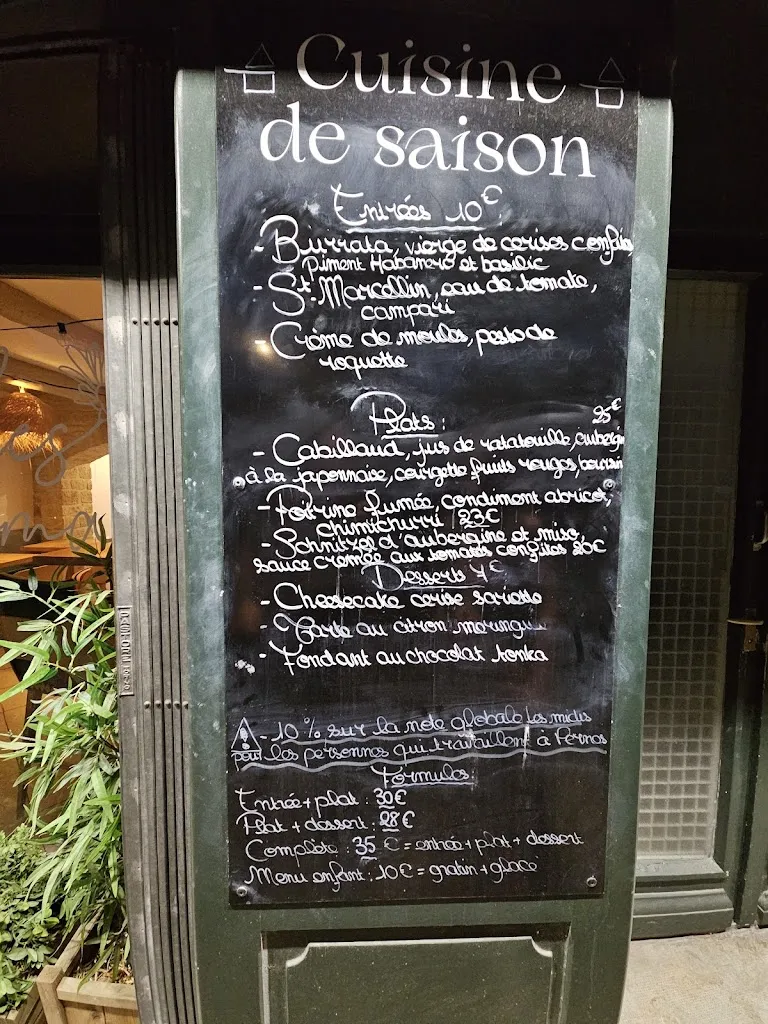 Cuisine
de saison
Entrées 10€
- Burrata, vierge de cerises confites
Piment Habanero et basilic
- St Marcellin, eau de tomate,
campari
- Crème de moules, pesto de
roquette
Plats : 25€
- Cabillaud, jus de ratatouille, aubergine
à la japonnaise, courgette fruits rouges,
- Poitrine fumée, condiment abricot,
chimichurri 23€
- Schnitzel d'aubergine et miso,
sauce cremée aux tomates confites 20€
Desserts 7€
- Cheesecake cerise sariette
- Tarte au citron meringuée
- Fondant au chocolat tonka
⚠ - 10 % sur la note globale les midis
pour les personnes qui travaillent à Pernes
Formules :
Entrée + plat : 30€
Plat + dessert : 28€
Complète : 35 € = entrée + plat + dessert
Menu enfant : 10€ = gratin + glace